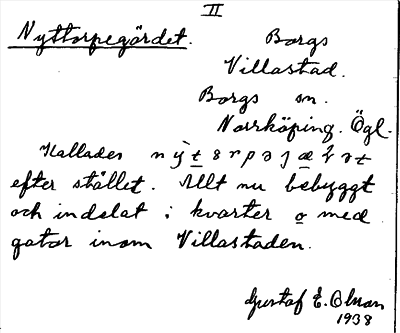 II
Nyttorpegärdet. Borgs
Villastad.
Borgs sn.
Norrköping. Ögl.
Kallades
efter stället. Allt nu bebyggt
och indelat i kvarter o med
gator inom Villastaden.
Gustaf E. Olman
1938